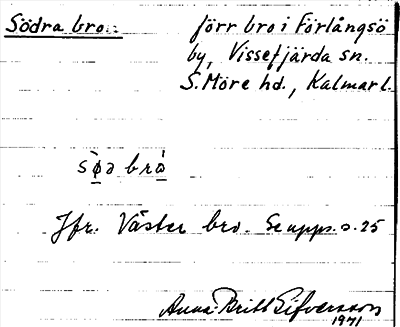 Södra bron
förr bro i Förlångsö
by, Vissefjärda sn.
S. Möre hd., Kalmar l.
sø̀ə brå̀
Jfr. Väster bro. Se upps. s. 25
Anna-Britt Sifversson
1971